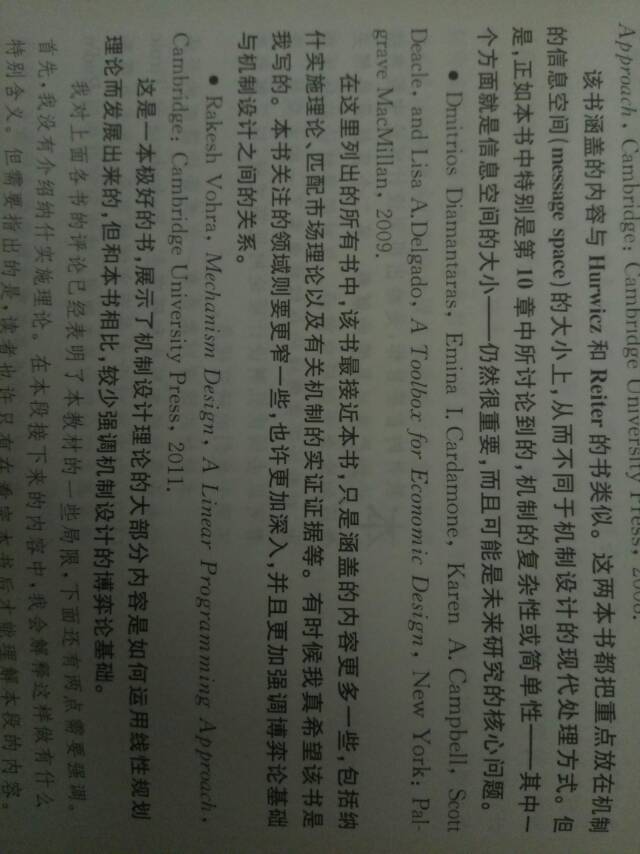 Approach, Cambridge: Cambridge University Press, 2008.
该书涵盖的内容与 Hurwicz 和 Reiter 的书类似。这两本书都把重点放在机制
的信息空间(message space)的大小上,从而不同于机制设计的现代处理方式。但
是,正如本书中特别是第 10 章中所讨论到的,机制的复杂性或简单性——其中一
个方面就是信息空间的大小——仍然很重要,而且可能是未来研究的核心问题。
• Dmitrios Diamantaras, Emina I. Cardamone, Karen A. Campbell, Scott
Deacle, and Lisa A. Delgado, A Toolbox for Economic Design, New York: Pal-
grave MacMillan, 2009.
在这里列出的所有书中,该书最接近本书,只是涵盖的内容更多一些,包括纳
什实施理论、匹配市场理论以及有关机制的实证证据等。有时候我真希望该书是
我写的。本书关注的领域则要更窄一些,也许更加深入,并且更加强调博弈论基础
与机制设计之间的关系。
• Rakesh Vohra, Mechanism Design, A Linear Programming Approach,
Cambridge: Cambridge University Press, 2011.
这是一本极好的书,展示了机制设计理论的大部分内容是如何运用线性规划
理论而发展出来的,但和本书相比,较少强调机制设计的博弈论基础。
我对上面各书的评论已经表明了本教材的一些局限,下面还有两点需要强调。
首先,我没有介绍纳什实施理论。在本段接下来的内容中,我会解释这样做有什么
特别含义。但需要指出的是,读者也许只有在看完本书后才能理解本段的内容。